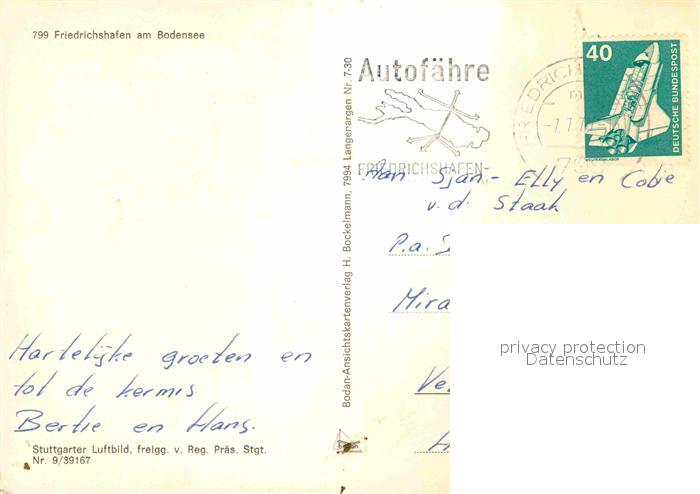 799 Friedrichshafen am Bodensee
Hartelijke groeten en
tot de kermis
Bertie en Hans.
Stuttgarter Luftbild, freigg. v. Reg. Präs. Stgt.
Nr. 9/39167
Bodan-Ansichtskartenverlag H. Bockelmann, 7994 Langenargen Nr. 7-30
Autofähre
FRIEDRICHSHAFEN-
FRIEDRICH
40
DEUTSCHE BUNDESPOST
Aan Sjan - Elly en Cobie
v.d. Staak
P.a. S
Mira
Ve
privacy protection
Datenschutz